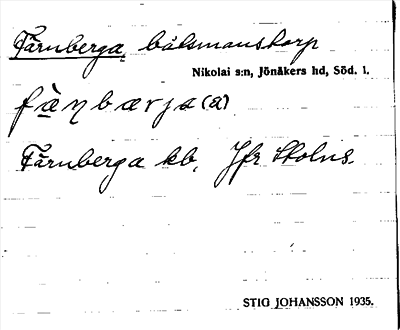 Färnberga, båtsmanstorp
Nikolai s:n, Jönåkers hd, Söd. l.
Färnberga kb, Jfr Skolns.
STIG JOHANSSON 1935.